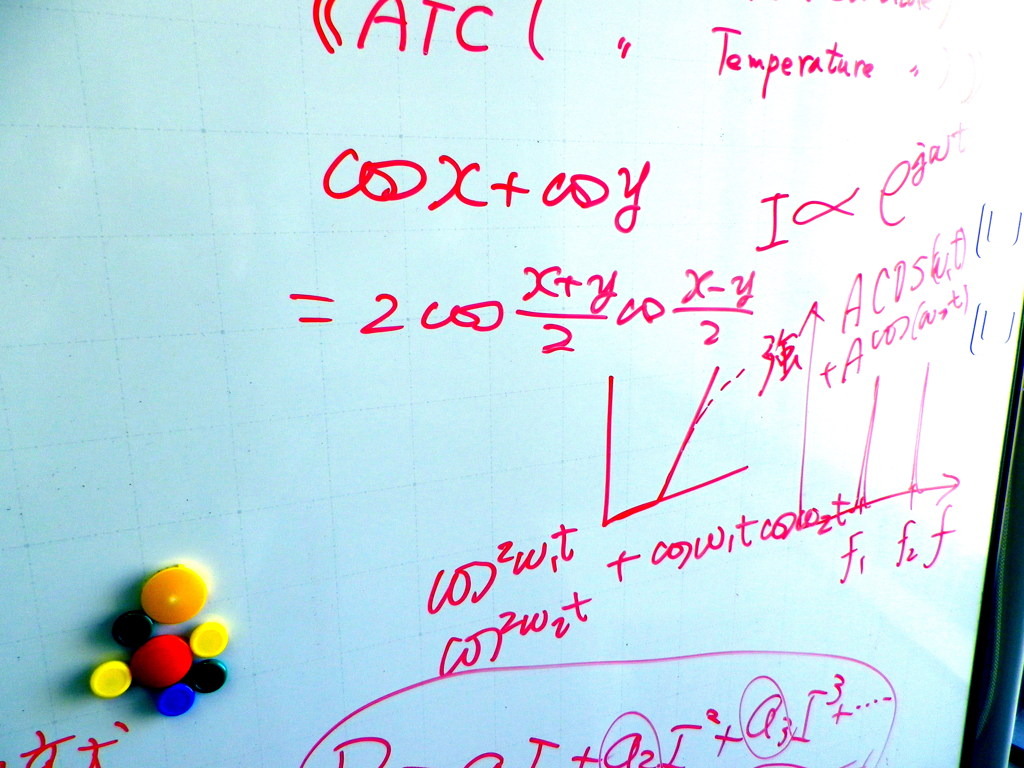 《ATC ( 〃 Temperature 〃 )》
cos x + cos y
= 2 cos (x+y)/2 cos (x-y)/2
I ∝ e^jωt
A cos(ω₁t) ( 1 )
+ A cos(ω₂t) ( 1 )
強
f₁ f₂ f
cos²ω₁t + cosω₁t cosω₂t
cos²ω₂t
I + a₂I² + a₃I³ + ....